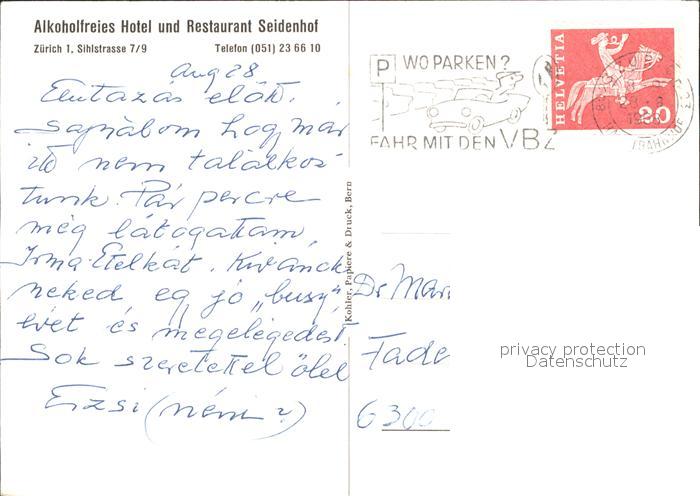 Alkoholfreies Hotel und Restaurant Seidenhof
Zürich 1, Sihlstrasse 7/9 Telefon (051) 23 66 10
Aug 28
Elutazás előtt.
Sajnálom hogy már
itt nem találkoz-
tunk. Pár percre
még látogattam
Irma Etelkát. Kivánok
neked egy jó „busy"
évet és megelégedést
Sok szeretettel ölel
Erzsi (néni?)
Kohler, Papiere & Druck, Bern
P WO PARKEN?
FAHR MIT DEN VBZ
HELVETIA
20
Dr Mari
Fade
6300
privacy protection
Datenschutz